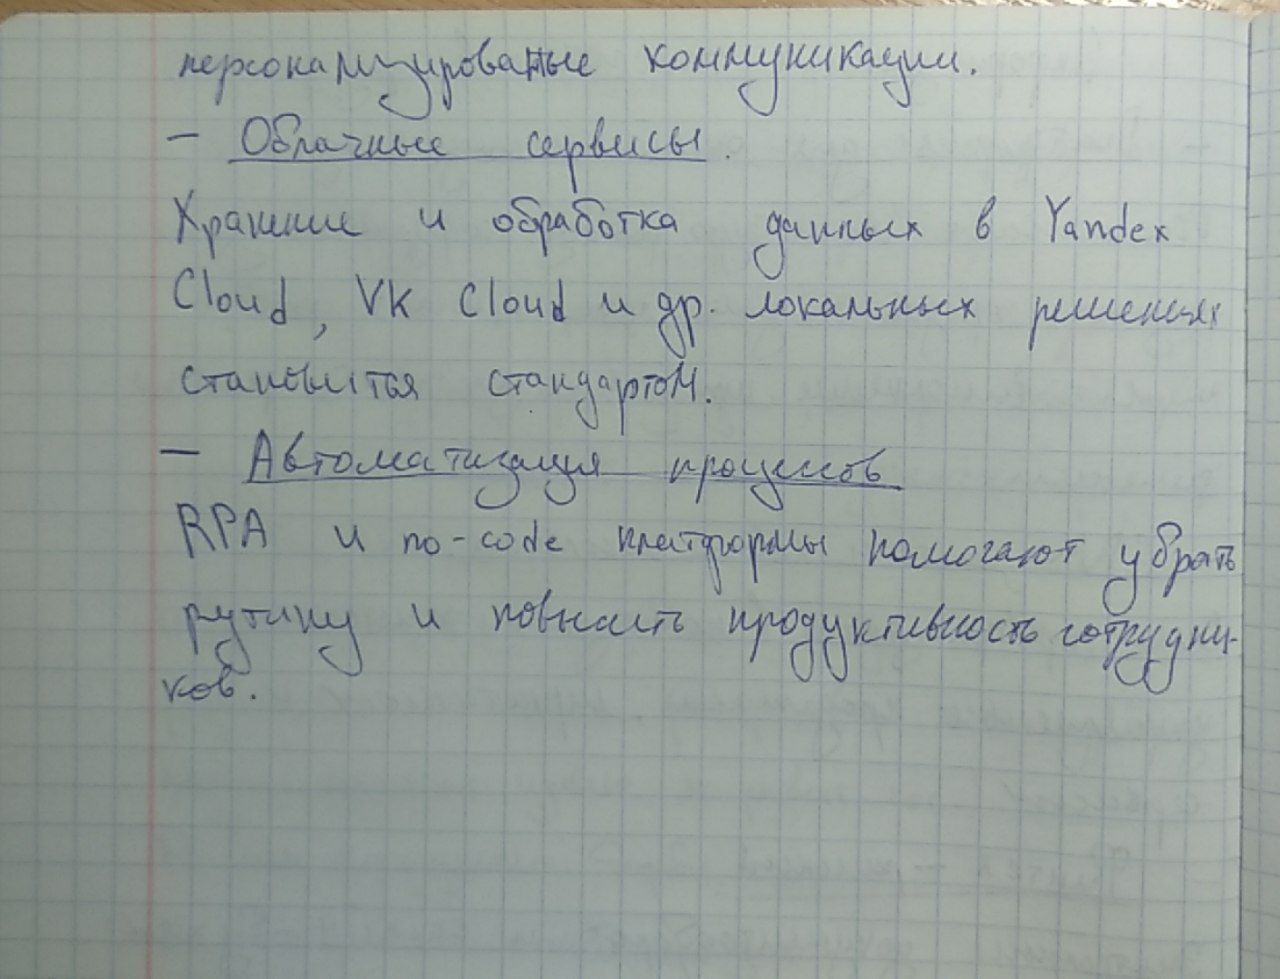 персонализированые коммуникации.
- Облачные сервисы.
Хранение и обработка данных в Yandex
Cloud, VK Cloud и др. локальных решениях
становится стандартом.
- Автоматизация процессов
RPA и no-code платформы помогают убрать
рутину и повысить продуктивность сотрудни-
ков.